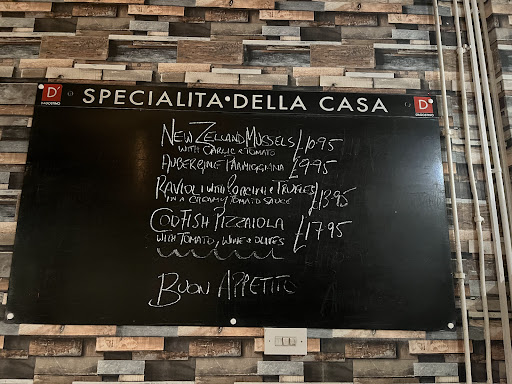 D'
D'AGOSTINO
SPECIALITA•DELLA CASA
D'
D'AGOSTINO
NEW ZELLAND MUSSELS £10.95
WITH GARLIC & TOMATO
AUBERGINE PARMIGGIANA £9.95
RAVIOLI WITH PORCINI & TRUFLES £13.95
IN A CREAMY TOMATO SAUCE
CODFISH PIZZAIOLA £17.95
WITH TOMATO, WINE & OLIVES
BUON APPETITO